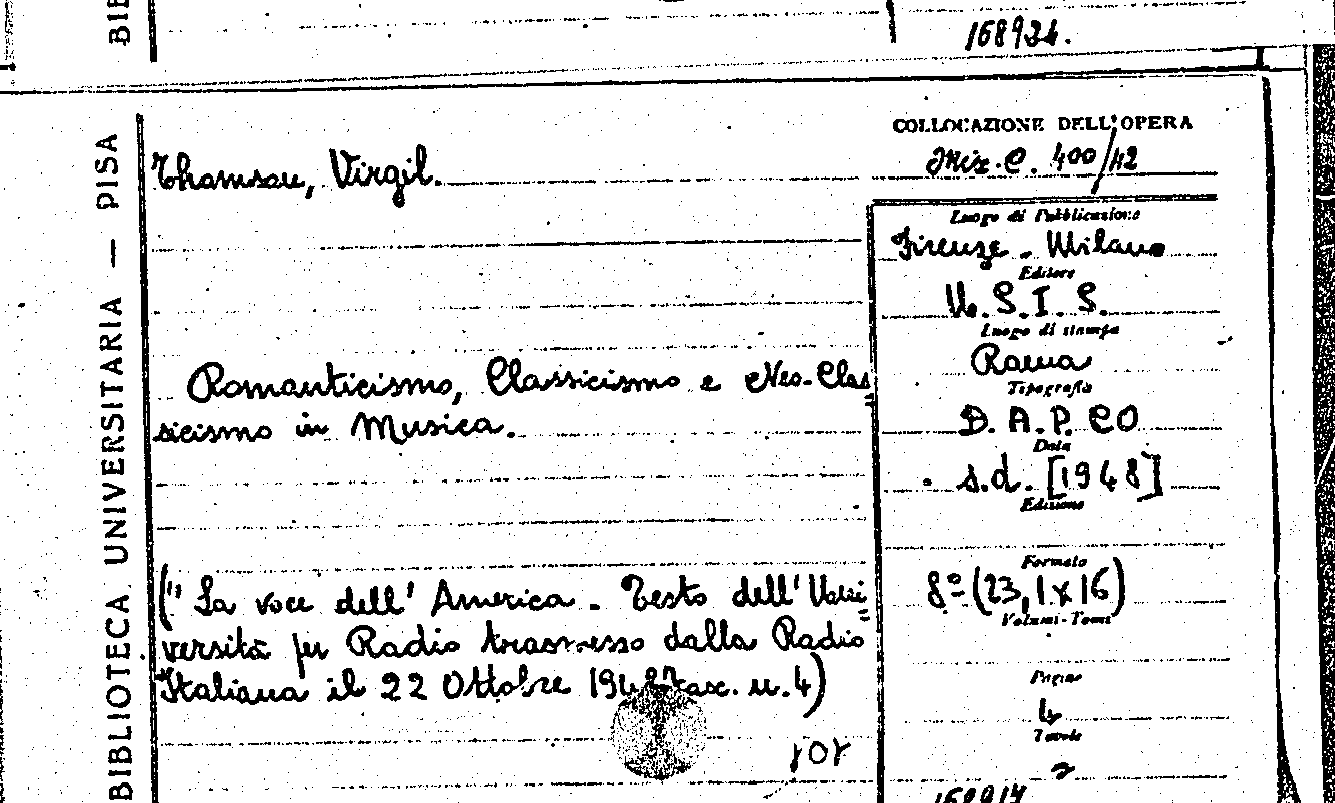 168934.
BIBLIOTECA UNIVERSITARIA — PISA
COLLOCAZIONE DELL'OPERA
Mix. C. 400/42
Thomson, Virgil.
Luogo di Pubblicazione
Firenze - Milano
Editore
U.S.I.S.
Luogo di stampa
Roma
Tipografia
D.A.P.CO
Data
s.d. [1948]
Edizione
Romanticismo, Classicismo e Neo-Clas
sicismo in Musica.
Formato
8º (23,1x16)
Volumi-Tomi
("La voce dell'America - Testo dell'Uni
versità per Radio trasmesso dalla Radio
Italiana il 22 Ottobre fasc. n. 4)
Pagine
4
Tavole